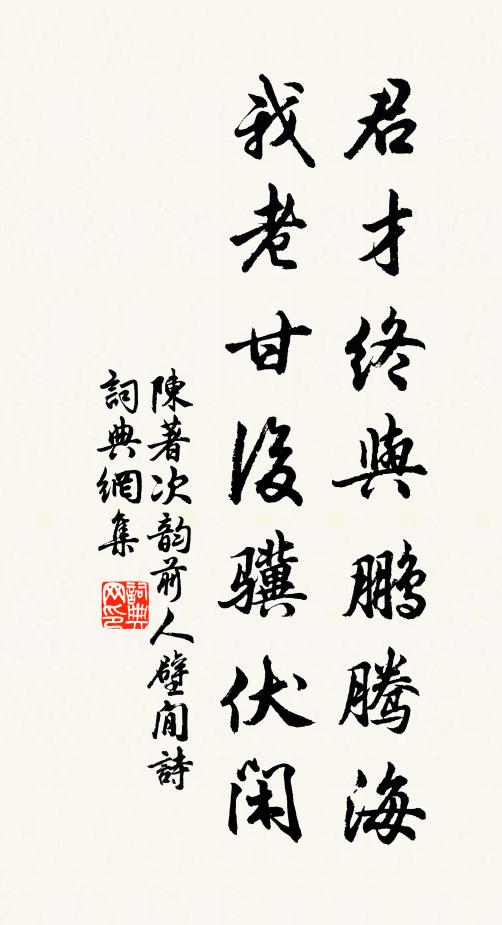 君才終與鵬騰海
我老甘後驥伏閑
陳著次韵前人壁間詩
詞典網集
詞典网印